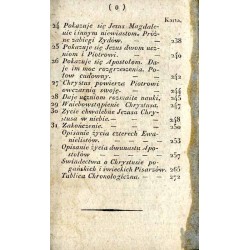 ( 0 )
Karta.
24 Pokazuje się Jezus Magdalenie i innym niewiastom. Próżne zabiegi Żydów. — 238
25 Pokazuje się Jezus dwom uczniom i Piotrowi — 240
26 Pokazuje się Apostołom. Daje im moc rozgrzeszenia. Połow cudowny. — 242
27 Chrystus powierza Piotrowi owczarnią swoję —
28 Daje uczniom rozmaite nauki. 245
29 Wniebowstąpienie Chrystusa. 247
30 Życie chwalebne Jezusa Chrystusa w niebie. — 248
31 Zakończenie. — 250
Opisanie życia czterech Ewanielistów. — 253
Opisanie życia dwunastu Apostołów — 257
Świadectwa o Chrystusie pogańskich i świeckich Pisarzów. 265
Tablica Chronologiczna. — 272